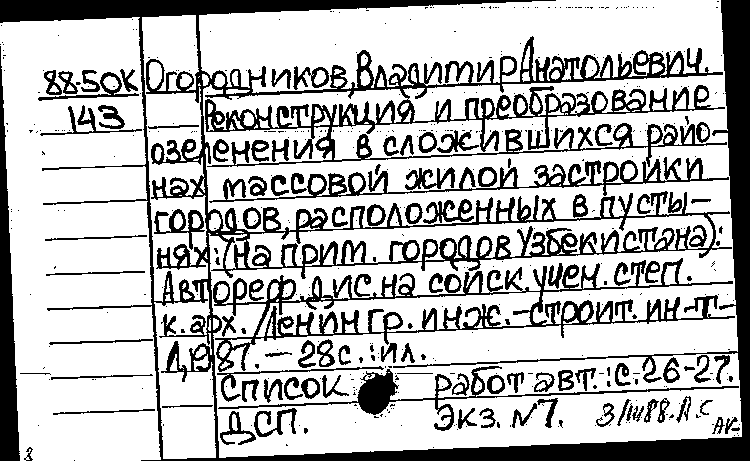 88-50К Огородников, Владимир Анатольевич.
143 Реконструкция и преобразование
озеленения в сложившихся райо-
нах массовой жилой застройки
городов, расположенных в пусты-
нях: (На прим. городов Узбекистана):
Автореф. дис. на соиск. учен. степ.
к. арх. / Ленингр. инж.-строит. ин-т-
Л, 1987. - 28с.: ил.
Список работ авт.: с. 26-27.
ДСП. Экз. №7.
8